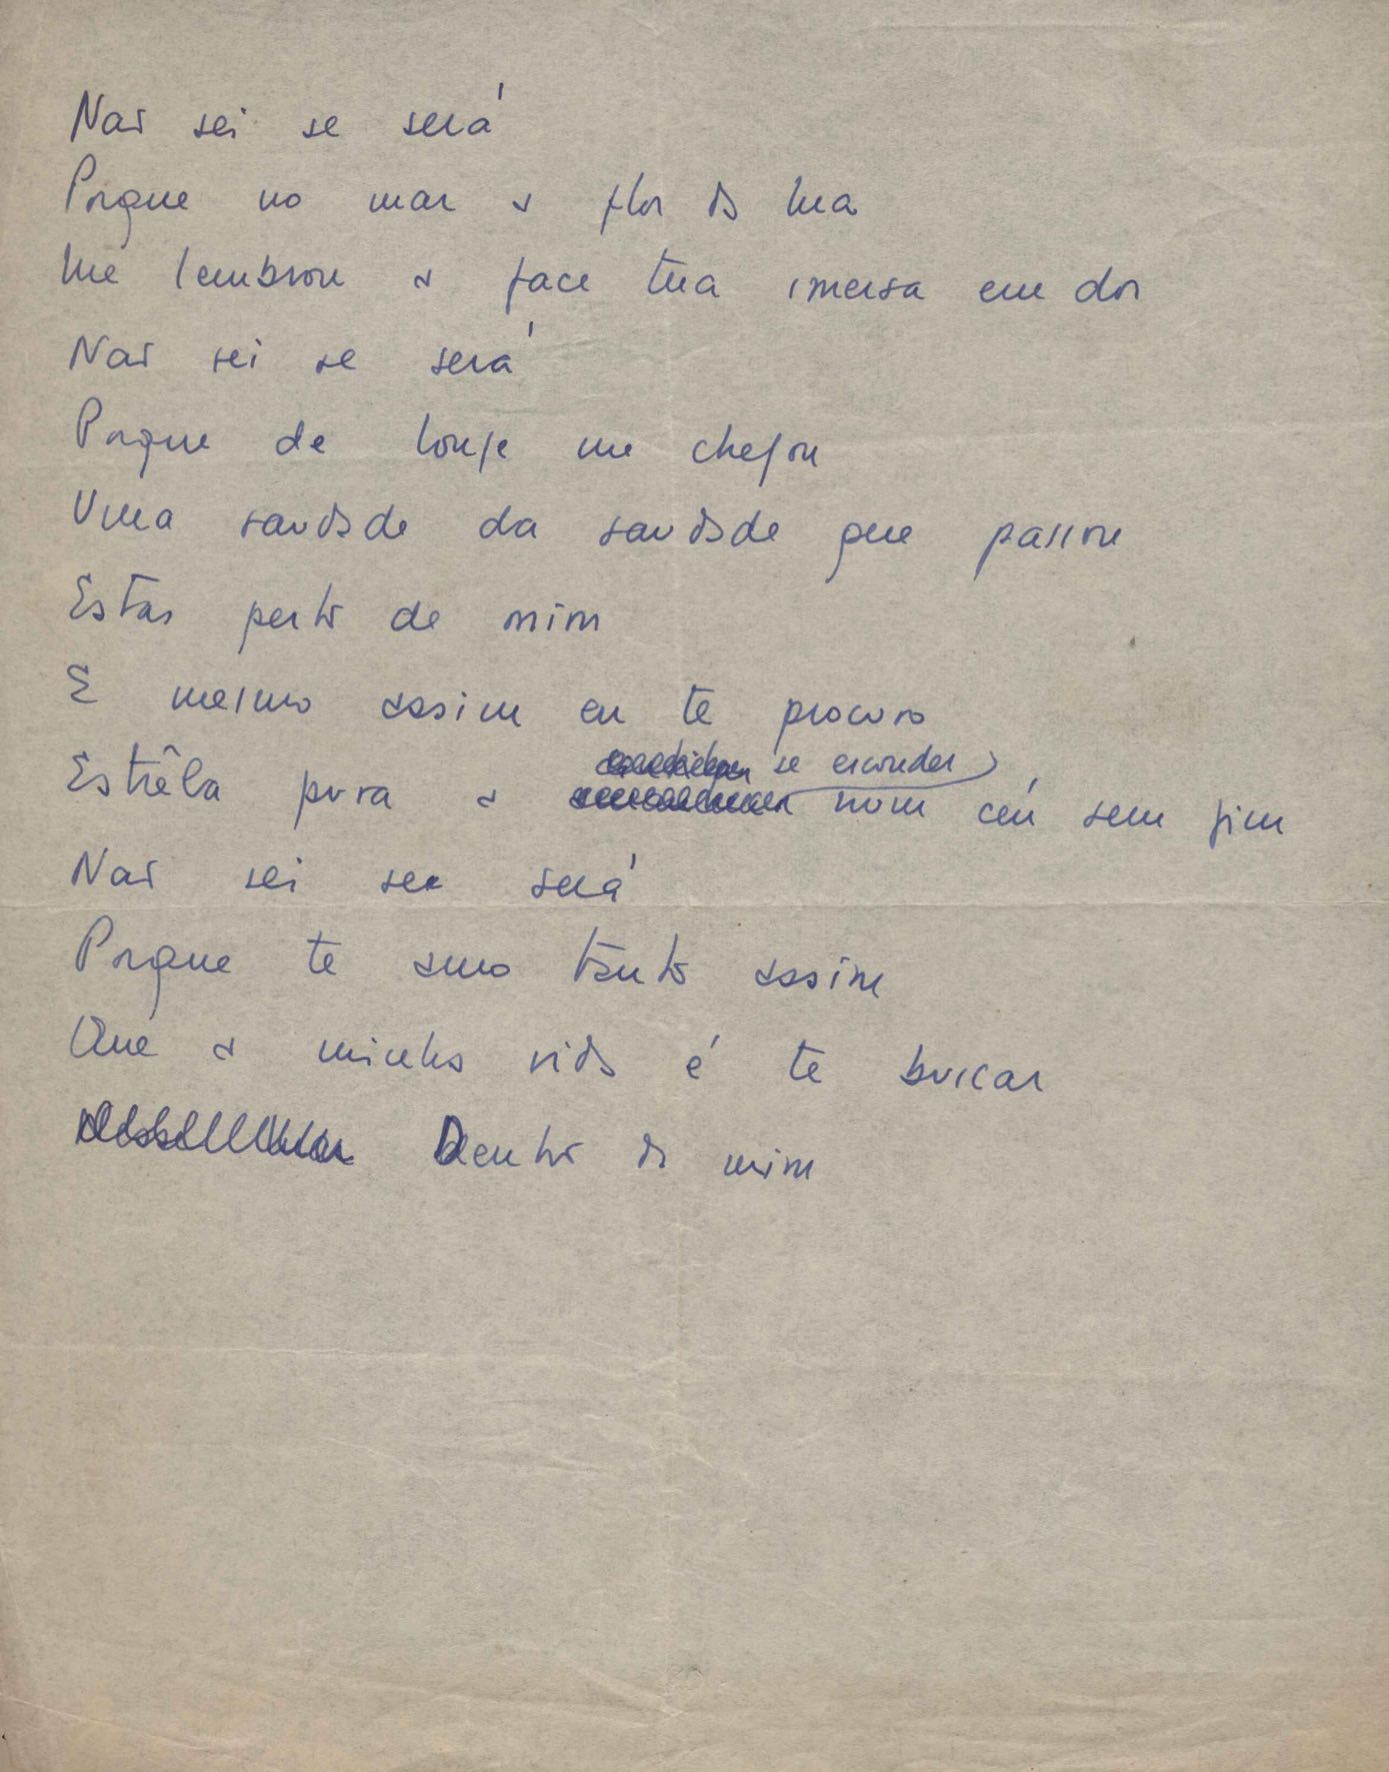 Não sei se será
Porque no mar a flor da lua
Me lembrou a face tua imersa em dor
Não sei se será
Porque de longe me chegou
Uma saudade da saudade que passou
Estás perto de mim
E mesmo assim eu te procuro
Estrêla pura a se esconder num céu sem fim
Não sei se será
Porque te amo tanto assim
Que a minha vida é te buscar
Dentro de mim